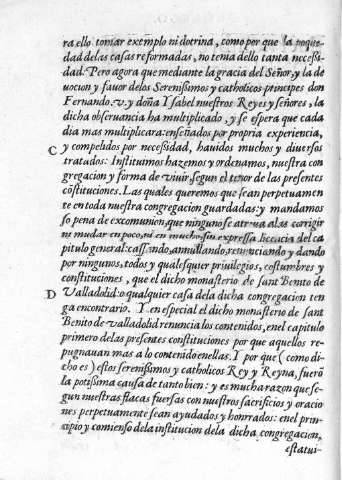 ra ello tomar exemplo ni dotrina, como por que la poque
dad delas casas reformadas, no tenia dello tanta necessi
dad. Pero agora que mediante la gracia del Señor y la de
uocion y fauor delos Serenissimos y catholicos principes don
Fernando. v. y doña Ysabel nuestros Reyes y señores, la
dicha obseruancia ha multiplicado, y se espera que cada
dia mas multiplicara: enseñados por propria experiencia,
C y compelidos por necessidad, hauidos muchos y diuersos
tratados: Instituimos hazemos y ordenamos, nuestra con
gregacion y forma de viuir segun el tenor de las presentes
cõstituciones. Las quales queremos que sean perpetuamen
te en toda nuestra congregacion guardadas: y mandamos
so pena de excomunion, que ninguno se atreua alas corrigir
ni mudar en poco, ni en mucho sin expressa licencia del ca
pitulo general: cassando, annullando, renunciando y dando
por ningunos, todos y qualesquier priuilegios, costumbres y
constituciones, que el dicho monasterio de sant Benito de
D Valladolid: o qualquier casa dela dicha congregacion ten
ga en contrario. Y en especial el dicho monasterio de sant
Benito de valladolid renuncia los contenidos, en el capitulo
primero delas presentes constituciones por que aquellos re-
pugnauan mas a lo contenido en ellas. Y por que (como di-
cho es) estos serenissimos y catholicos Rey y Reyna, fuerõ
la potissima causa de tanto bien: y es mucha razon que se-
gun nuestras flacas fuerzas con nuestros sacrificios y oracio
nes perpetuamente sean ayudados y honrrados: en el prin-
cipio y comienso dela institucion dela dicha congregacion,
estatui-